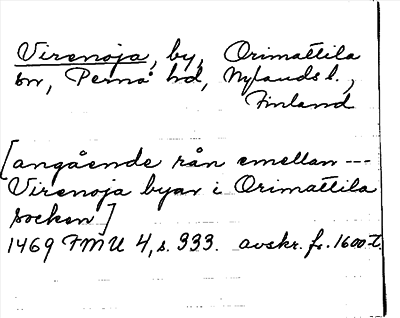 Virenoja, by, Orimattila
sn, Pernå hd, Nylands l.,
Finland
[angående rån emellan ---
Virenoja byar i Orimattila
socken]
1469 FMU 4, s. 333. avskr. fr. 1600-t.